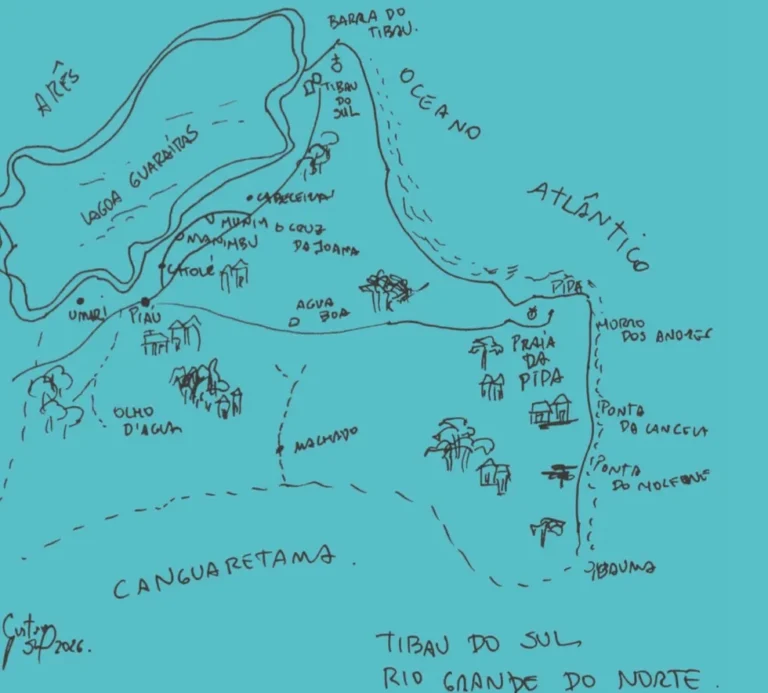 BARRA DO
TIBAU.
ARÊS
OCEANO
TIBAU
DO
SUL
LAGOA GUARAÍRAS
ATLÂNTICO
CABECEIRAS
MUNIM
CRUZ
DA JOANA
MANIMBU
CATOLÉ
UMARI
PIAU
AGUA
BOA
PIPA
MORRO
DOS ANDRES
PRAIA
DA
PIPA
PONTA
DA CANCELA
OLHO
D'AGUA
MACHADO
PONTA
DO MOLEQUE
SIBAUMA
CANGUARETAMA.
2026.
TIBAU DO SUL
RIO GRANDE DO NORTE.